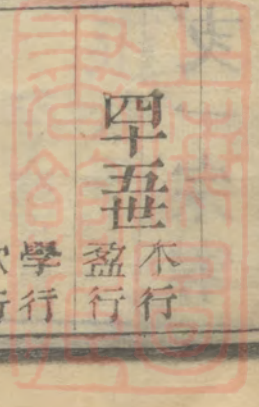 四十五世
木行
盈行
學行
行